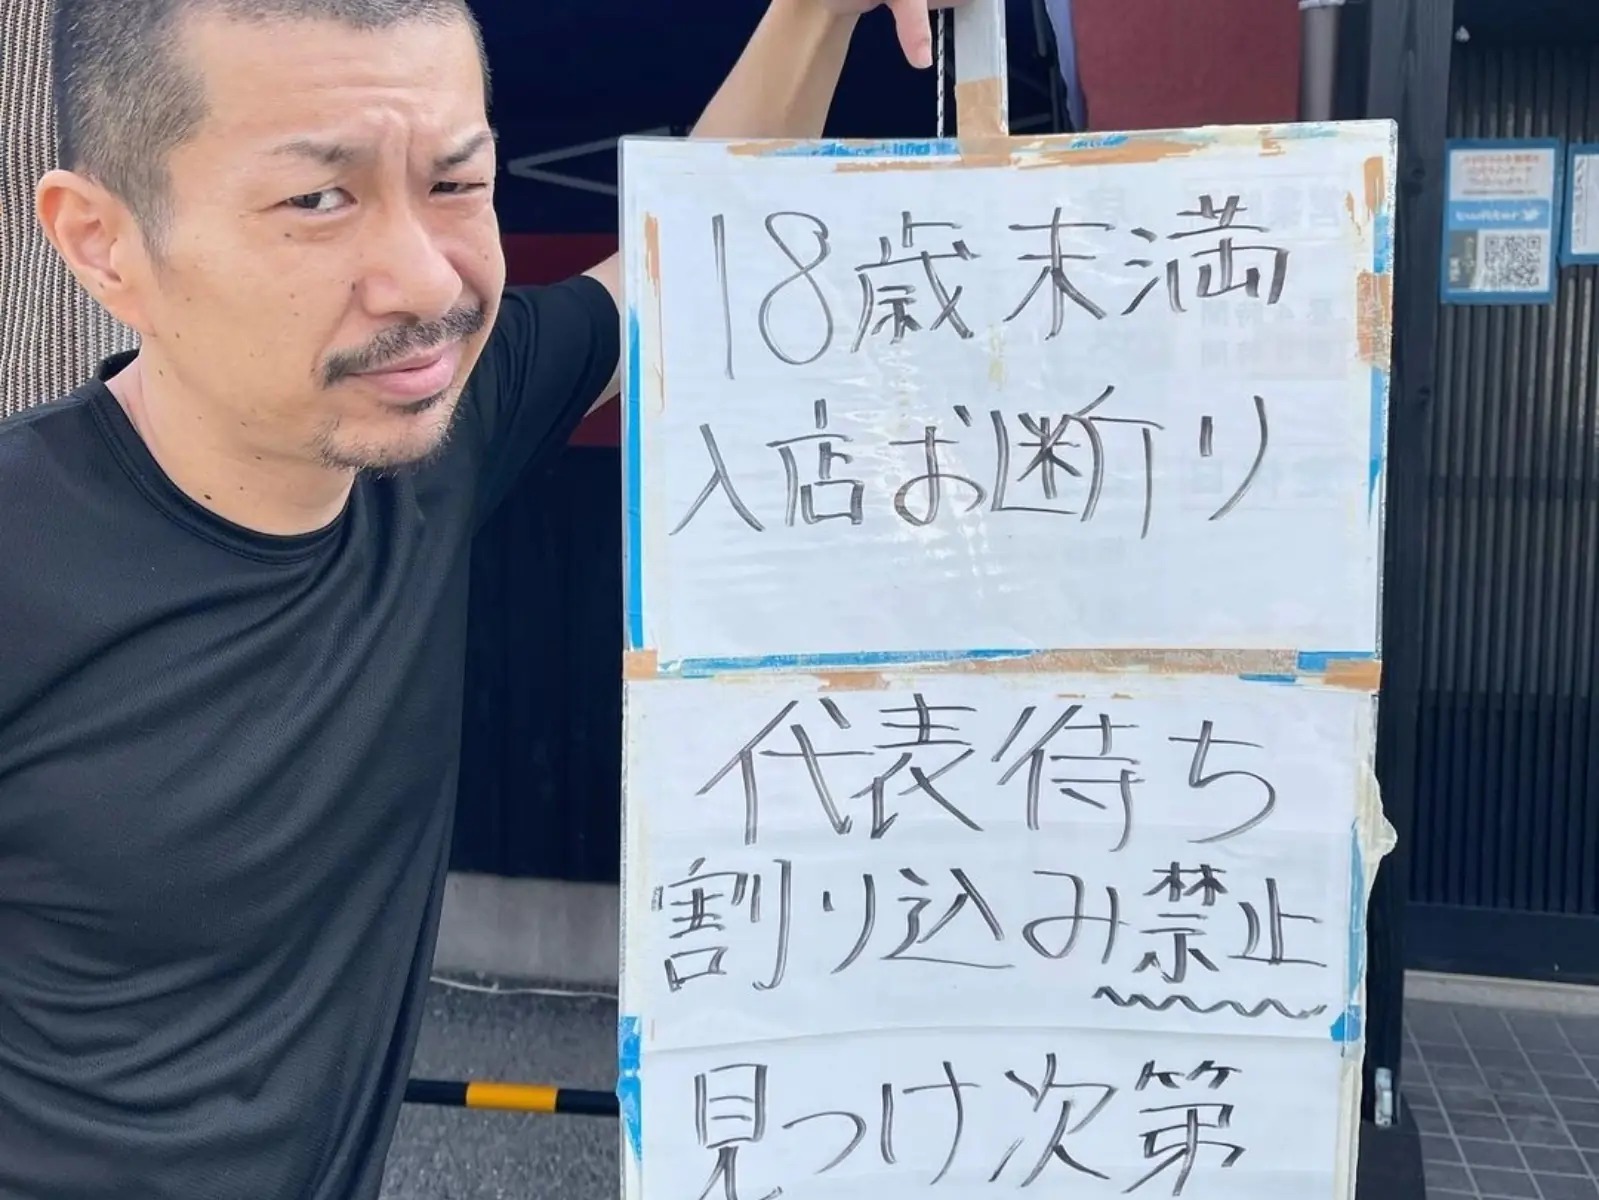 18歳未満
入店お断り
代表待ち
割り込み禁止
見つけ次第